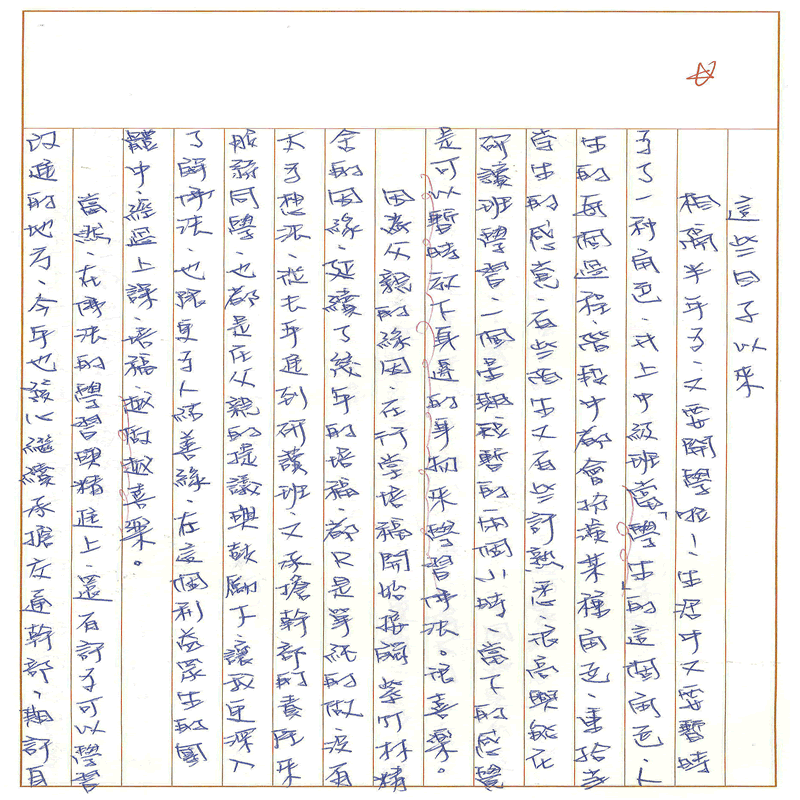 這些日子以來
相隔半年多、又要開學啦！生活中又要暫時
多了一種角色、我上中級班當「學生」的這個角色、人
生的每個過程、階段中都會扮演某種角色、重拾當
當生的感覺、有些陌生又有些許熟悉、很高興能在
研讀班學習、一個星期短暫的兩個小時、當下的感覺
是可以暫時放下身邊的事物來學習佛法。很喜樂。
因為父親的緣因、在行堂培福開始接觸紫竹林精
舍的因緣、延續了幾年的培福、都只是單純的做沒有
太多想法、從去年進到研讀班、又承擔幹部的責任來
服務同學、也都是在父親的提議與鼓勵下、讓我更深入
了解佛法、也跟更多人結善緣、在這個利益眾生的團
體中、經過上課、培福、越做越喜樂。
當然、在佛法的學習與精進上、還有許多可以學習
改進的地方、今年也發心繼續承擔交通幹部、期許自